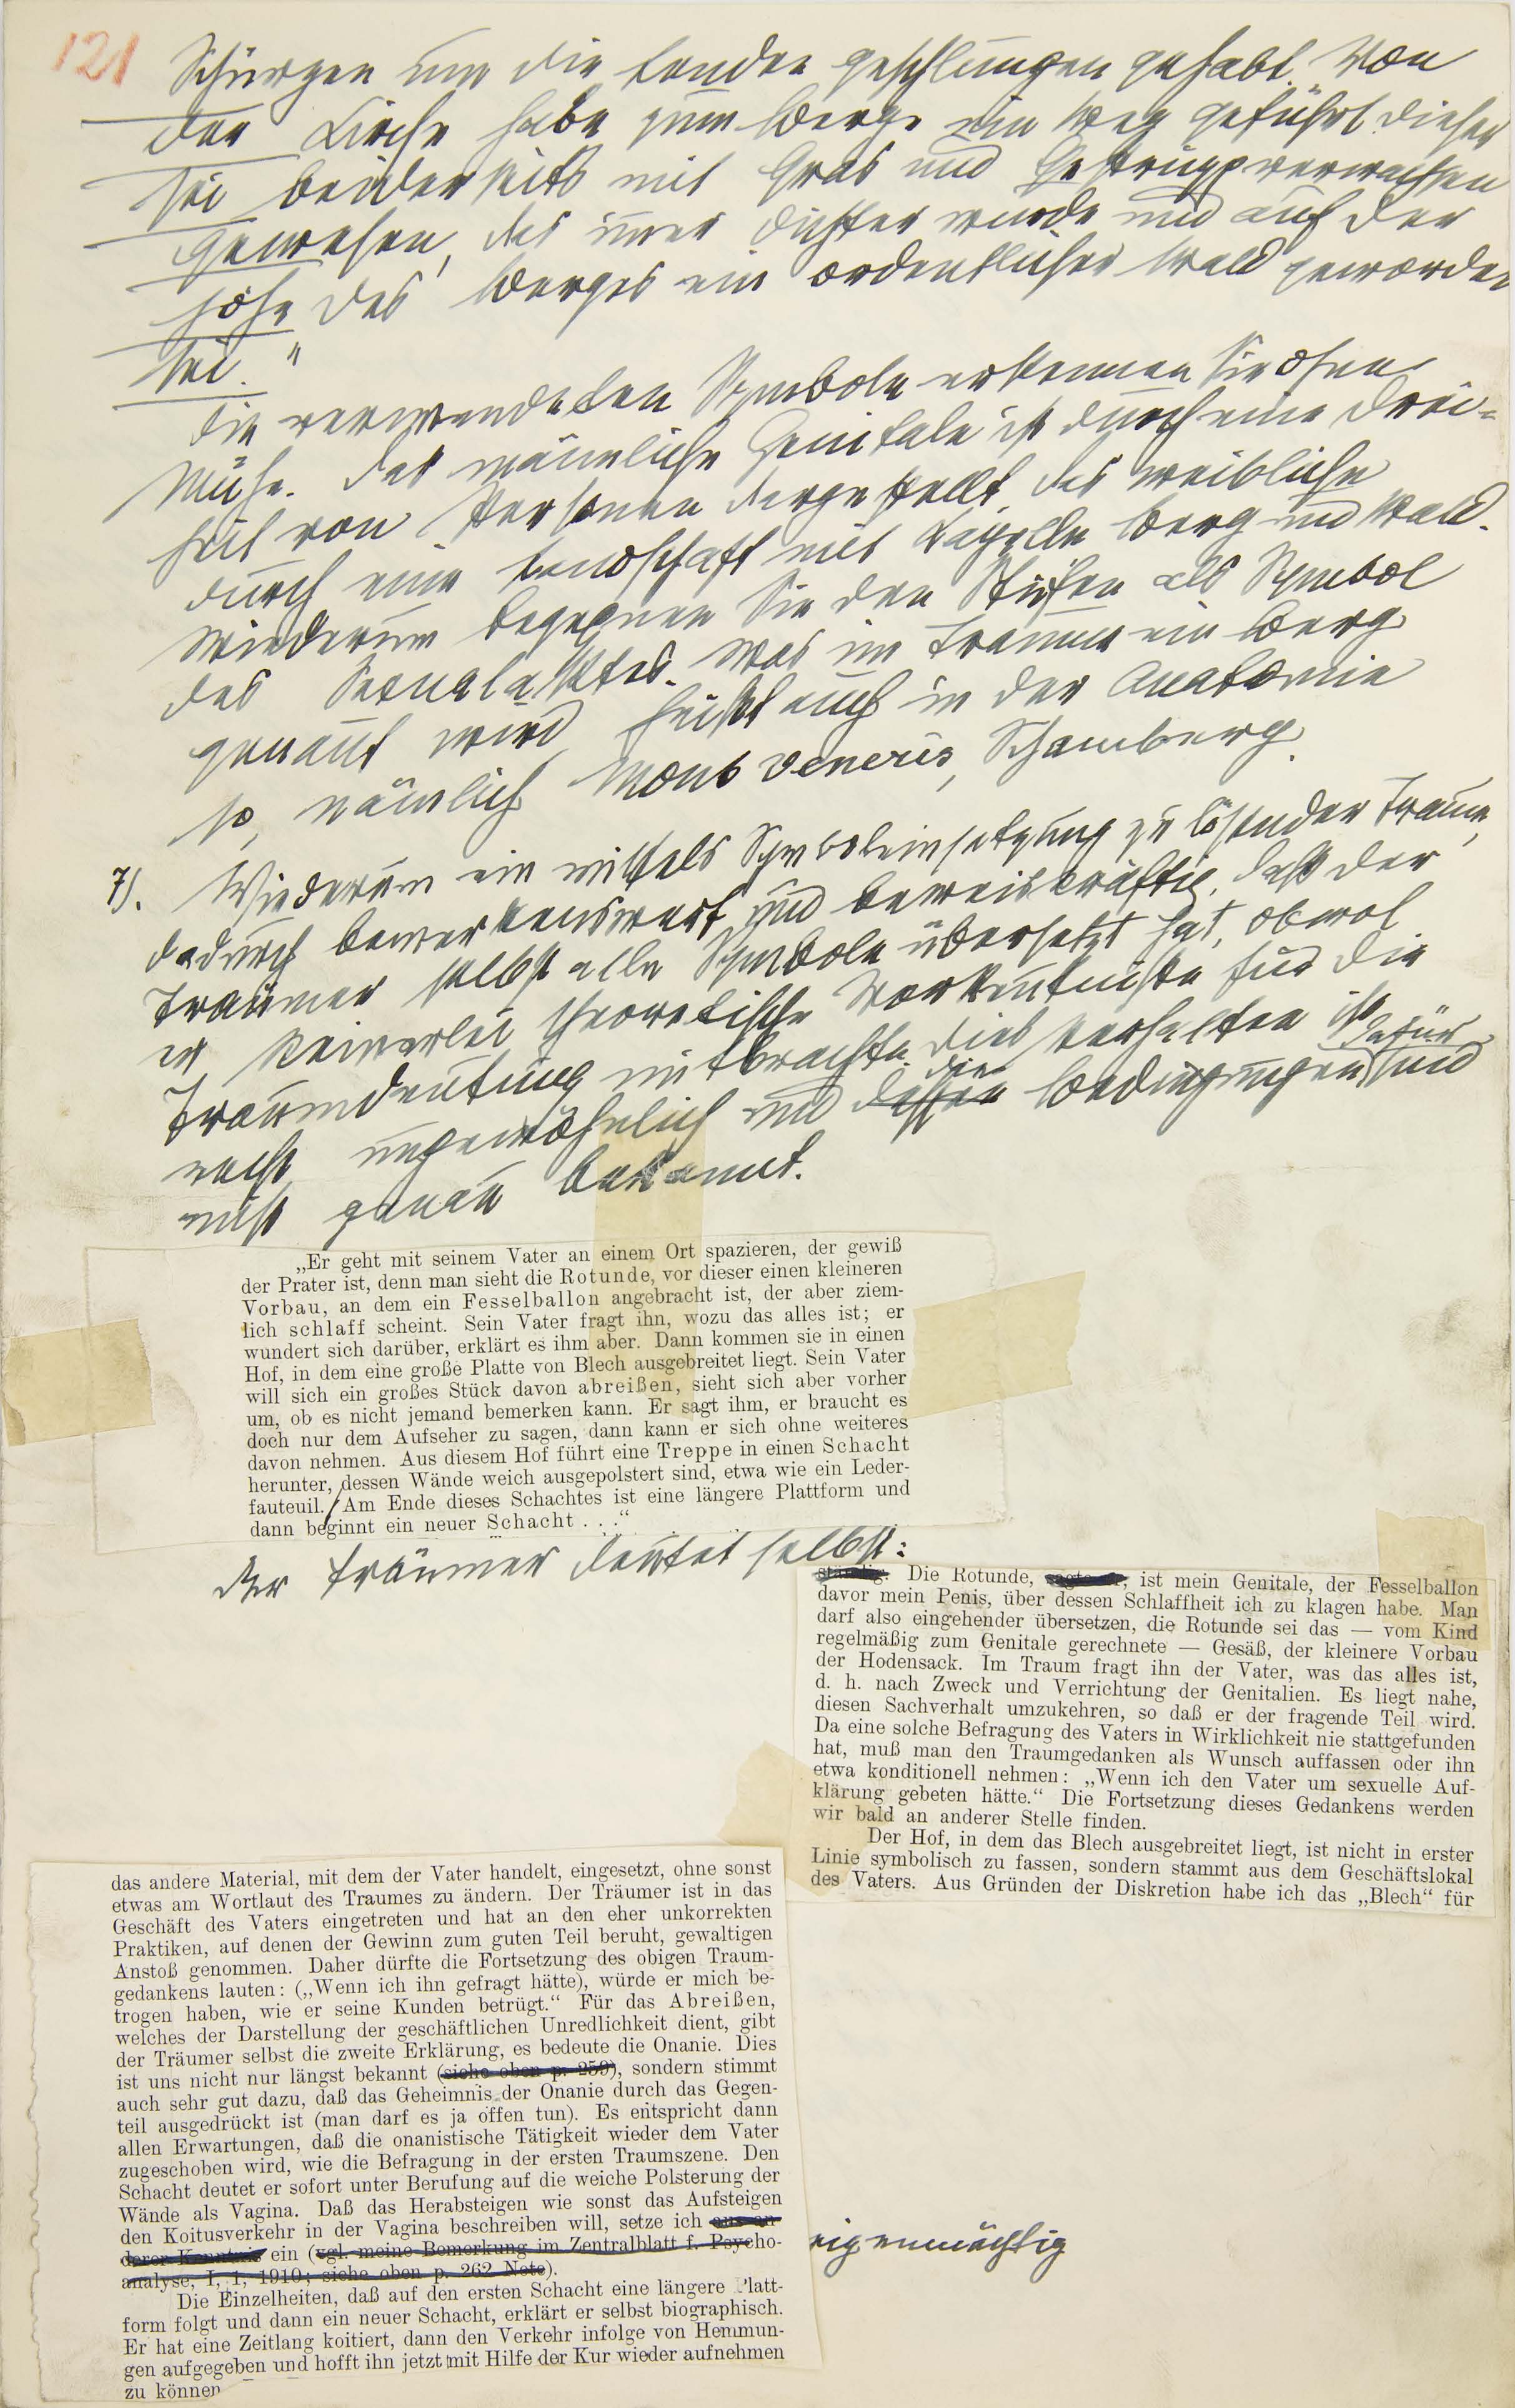 121
Schürzen um die Lenden geschlungen gehabt. Von
der Kirche habe zum Berge ein Weg geführt. Dieser
sei beiderseits mit Gras und Gestrüpp verwachsen
gewesen, das immer dichter wurde und auf der
Höhe des Berges ein ordentlicher Wald geworden
sei."
Die verwendeten Symbole erkennen Sie ohne
Mühe. Das männliche Genitale ist durch eine Drei=
heit von Personen dargestellt, das weibliche
durch eine Landschaft mit Kapelle Berg und Wald.
Wiederum begegnen Sie den Stufen als Symbol
des Sexualaktes. Was im Traume ein Berg
genannt wird, heißt auch in der Anatomie
so, nämlich Mons veneris, Schamberg.
7). Wiederum ein mittels Symboleinsetzung zu lösender Traum,
dadurch bemerkenswert und beweiskräftig, daß der
Träumer selbst alle Symbole übersetzt hat, obwol
er keinerlei theoretische Vorkenntnisse für die
Traumdeutung mitbrachte. Dies Verhalten ist
recht ungewöhnlich und dessen die Bedingungen dafür sind
nicht genau bekannt.
„Er geht mit seinem Vater an einem Ort spazieren, der gewiß
der Prater ist, denn man sieht die Rotunde, vor dieser einen kleineren
Vorbau, an dem ein Fesselballon angebracht ist, der aber ziem-
lich schlaff scheint. Sein Vater fragt ihn, wozu das alles ist; er
wundert sich darüber, erklärt es ihm aber. Dann kommen sie in einen
Hof, in dem eine große Platte von Blech ausgebreitet liegt. Sein Vater
will sich ein großes Stück davon abreißen, sieht sich aber vorher
um, ob es nicht jemand bemerken kann. Er sagt ihm, er braucht es
doch nur dem Aufseher zu sagen, dann kann er sich ohne weiteres
davon nehmen. Aus diesem Hof führt eine Treppe in einen Schacht
herunter, dessen Wände weich ausgepolstert sind, etwa wie ein Leder-
fauteuil. Am Ende dieses Schachtes ist eine längere Plattform und
dann beginnt ein neuer Schacht . . .“
Der Träumer deutet selbst:
ständig. Die Rotunde, sagte er, ist mein Genitale, der Fesselballon
davor mein Penis, über dessen Schlaffheit ich zu klagen habe. Man
darf also eingehender übersetzen, die Rotunde sei das — vom Kind
regelmäßig zum Genitale gerechnete — Gesäß, der kleinere Vorbau
der Hodensack. Im Traum fragt ihn der Vater, was das alles ist,
d. h. nach Zweck und Verrichtung der Genitalien. Es liegt nahe,
diesen Sachverhalt umzukehren, so daß er der fragende Teil wird.
Da eine solche Befragung des Vaters in Wirklichkeit nie stattgefunden
hat, muß man den Traumgedanken als Wunsch auffassen oder ihn
etwa konditionell nehmen: „Wenn ich den Vater um sexuelle Auf-
klärung gebeten hätte.“ Die Fortsetzung dieses Gedankens werden
wir bald an anderer Stelle finden.
Der Hof, in dem das Blech ausgebreitet liegt, ist nicht in erster
Linie symbolisch zu fassen, sondern stammt aus dem Geschäftslokal
des Vaters. Aus Gründen der Diskretion habe ich das „Blech“ für
das andere Material, mit dem der Vater handelt, eingesetzt, ohne sonst
etwas am Wortlaut des Traumes zu ändern. Der Träumer ist in das
Geschäft des Vaters eingetreten und hat an den eher unkorrekten
Praktiken, auf denen der Gewinn zum guten Teil beruht, gewaltigen
Anstoß genommen. Daher dürfte die Fortsetzung des obigen Traum-
gedankens lauten: („Wenn ich ihn gefragt hätte), würde er mich be-
trogen haben, wie er seine Kunden betrügt.“ Für das Abreißen,
welches der Darstellung der geschäftlichen Unredlichkeit dient, gibt
der Träumer selbst die zweite Erklärung, es bedeute die Onanie. Dies
ist uns nicht nur längst bekannt (siehe oben p. 259), sondern stimmt
auch sehr gut dazu, daß das Geheimnis der Onanie durch das Gegen-
teil ausgedrückt ist (man darf es ja offen tun). Es entspricht dann
allen Erwartungen, daß die onanistische Tätigkeit wieder dem Vater
zugeschoben wird, wie die Befragung in der ersten Traumszene. Den
Schacht deutet er sofort unter Berufung auf die weiche Polsterung der
Wände als Vagina. Daß das Herabsteigen wie sonst das Aufsteigen
den Koitusverkehr in der Vagina beschreiben will, setze ich aus an-
derer Kenntnis ein (vgl. meine Bemerkung im Zentralblatt f. Psycho-
analyse, I, 1, 1910; siehe oben p. 262 Note).
eigenmächtig
Die Einzelheiten, daß auf den ersten Schacht eine längere Platt-
form folgt und dann ein neuer Schacht, erklärt er selbst biographisch.
Er hat eine Zeitlang koitiert, dann den Verkehr infolge von Hemmun-
gen aufgegeben und hofft ihn jetzt mit Hilfe der Kur wieder aufnehmen
zu können